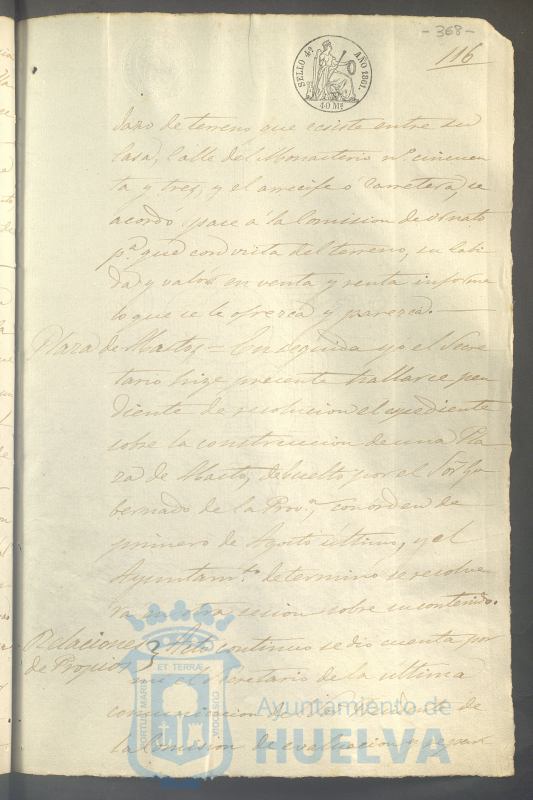 - 368 -
116
SELLO 4º AÑO 1861.
40 Mˢ
dazo de terreno que ecsiste entre su
casa, calle del Monasterio nº. cincuen
ta y tres, y el arrecife ó carretera, se
acordó pase á la Comision de Ornato
pª. que con vista del terreno, su cabi
da y valor en venta y renta informe
lo que se le ofrezca y parezca.
Plaza de Abastos = En seguida yo el Secre
tario hize presente hallarse pen
diente de resolucion el espediente
sobre la construccion de una Pla
za de Abastos, debuelto por el Sor. Go
bernador de la Provª., con orden de
primero de Agosto último, y el
Ayuntamto. determinó se resolvie
ra en otra sesion sobre su contenido.
Relaciones
de Propios
Acto continuo se dio cuenta por
mi el Secretario de la última
comunicacion de
la Comision de evaluacion y repart
PORTUS MARIS ET TERRÆ CUSTODIA
Ayuntamiento de
HUELVA